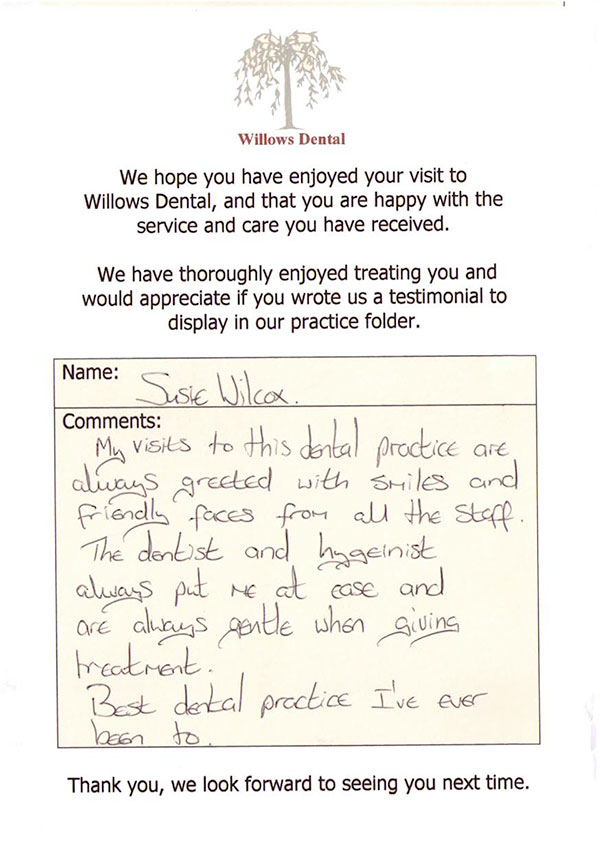 Willows Dental
We hope you have enjoyed your visit to
Willows Dental, and that you are happy with the
service and care you have received.
We have thoroughly enjoyed treating you and
would appreciate if you wrote us a testimonial to
display in our practice folder.
Name: Susie Wilcox.
Comments:
My visits to this dental practice are
always greeted with smiles and
friendly faces from all the staff.
The dentist and hygeinist
always put me at ease and
are always gentle when giving
treatment.
Best dental practice I've ever
been to.
Thank you, we look forward to seeing you next time.